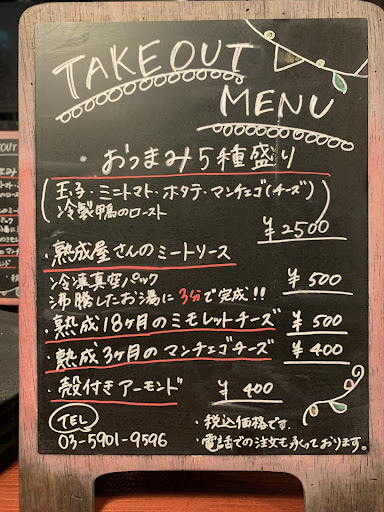 TAKEOUT
MENU
・おつまみ5種盛り
(玉子・ミニトマト・ホタテ・マンチェゴ(チーズ)
冷製鴨のロースト)
¥2500
・熟成屋さんのミートソース
冷凍真空パック
沸騰したお湯に3分で完成!!
¥500
・熟成18ヶ月のミモレットチーズ ¥500
・熟成3ヶ月のマンチェゴチーズ ¥400
・殻付きアーモンド ¥400
TEL
03-5901-9596
・税込価格です.
・電話での注文も承っております。